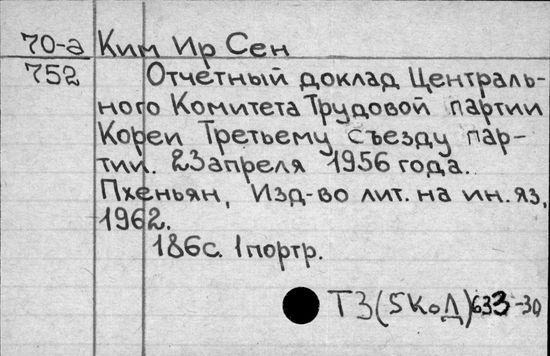 70-а Ким Ир Сен
752 Отчетный доклад Централь-
ного Комитета Трудовой партии
Кореи Третьему съезду пар-
тии. 23 апреля 1956 года.
Пхеньян, Изд-во лит. на ин. яз,
1962.
186с. 1портр.
Т3(5КоД)633-30